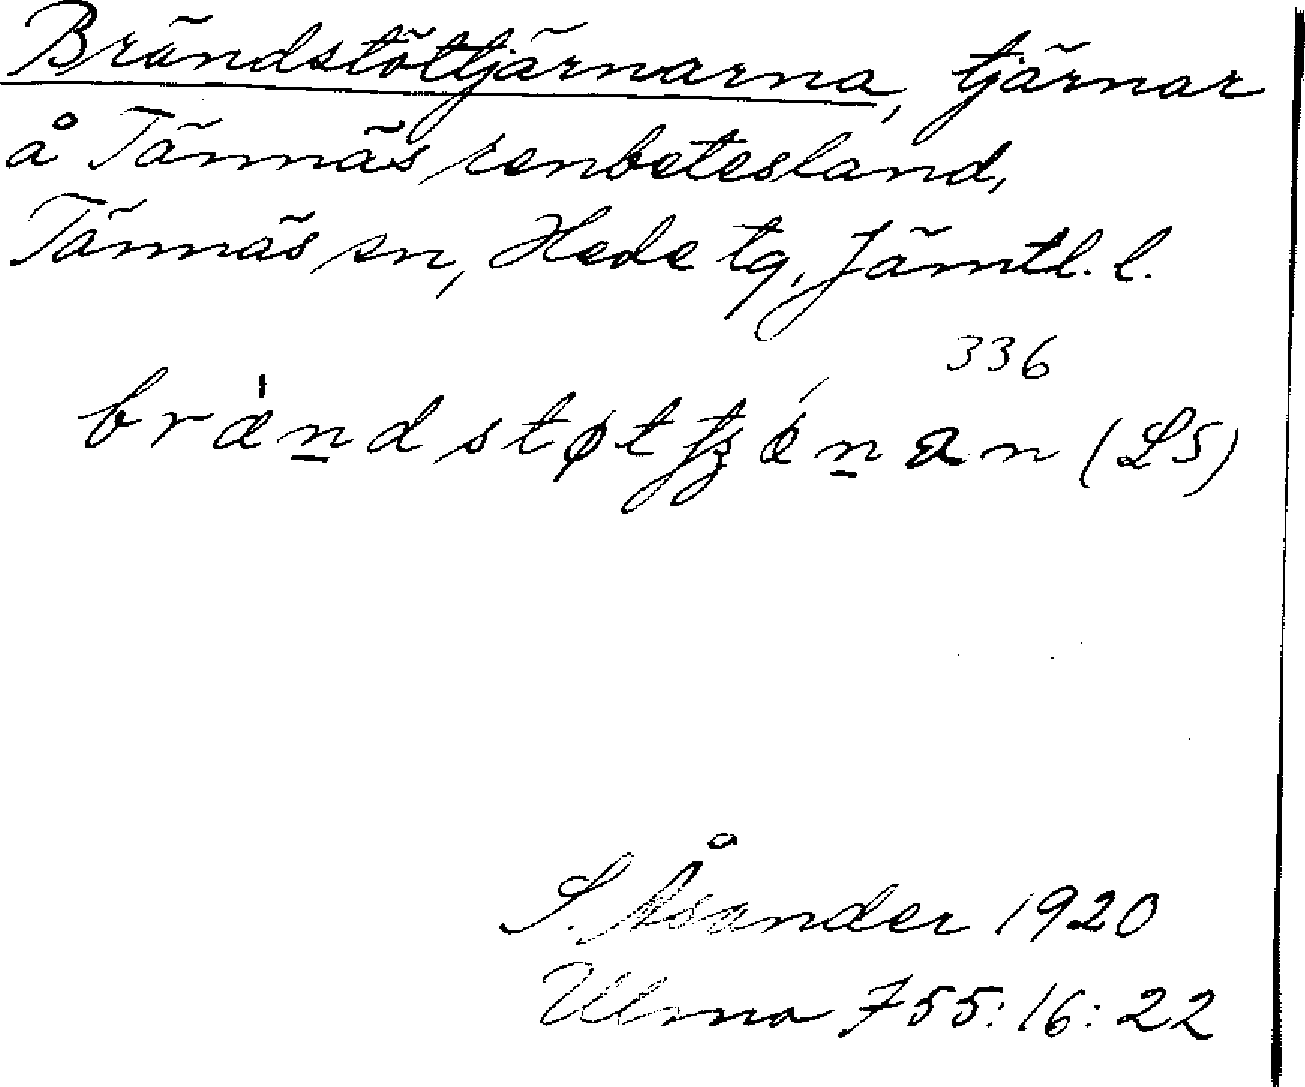 Brändstöttjärnarna, tjärnar
å Tännäs renbetesland,
Tännäs sn, Hede tg, Jämtl. l.
336
(LS)
S. Åsander 1920
Ulma 755:16:22